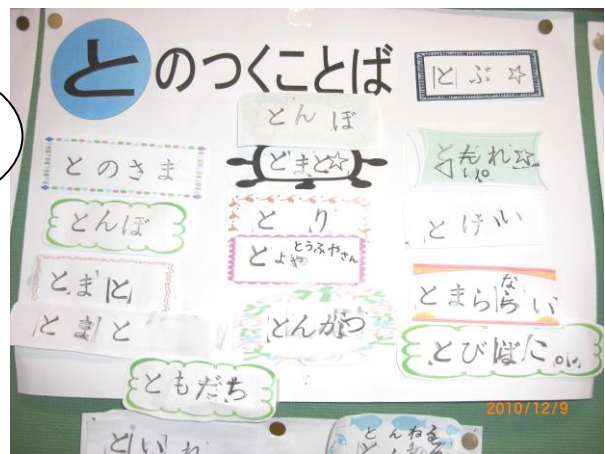 とのつくことば
とぶ☆
とんぼ
とのさま
とまと☆
とんぼ
とり
とけい
とうふやさん
とまと
とまらない
とまと
とんかつ
とびばこ。
ともだち
といれ
とんねる
2010/12/9